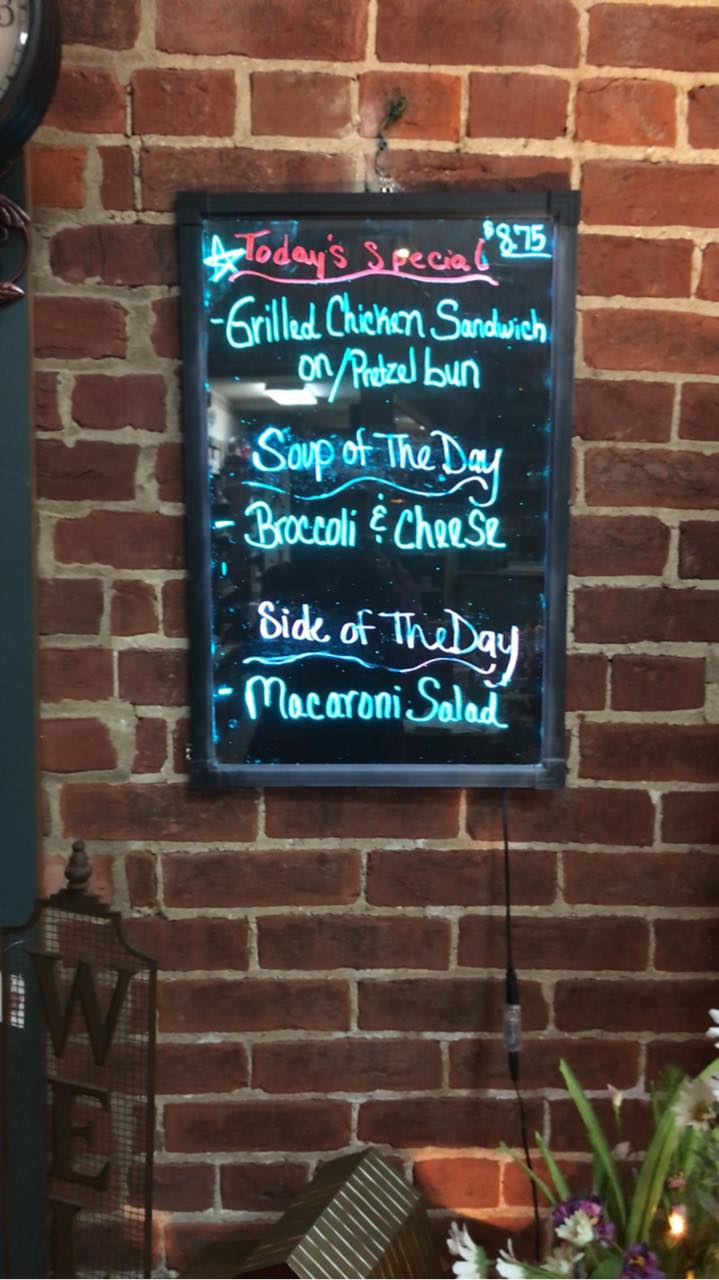 Today's Special $8.75
- Grilled Chicken Sandwich
on/Pretzel bun
Soup of The Day
- Broccoli & Cheese
Side of The Day
- Macaroni Salad
3
W
E